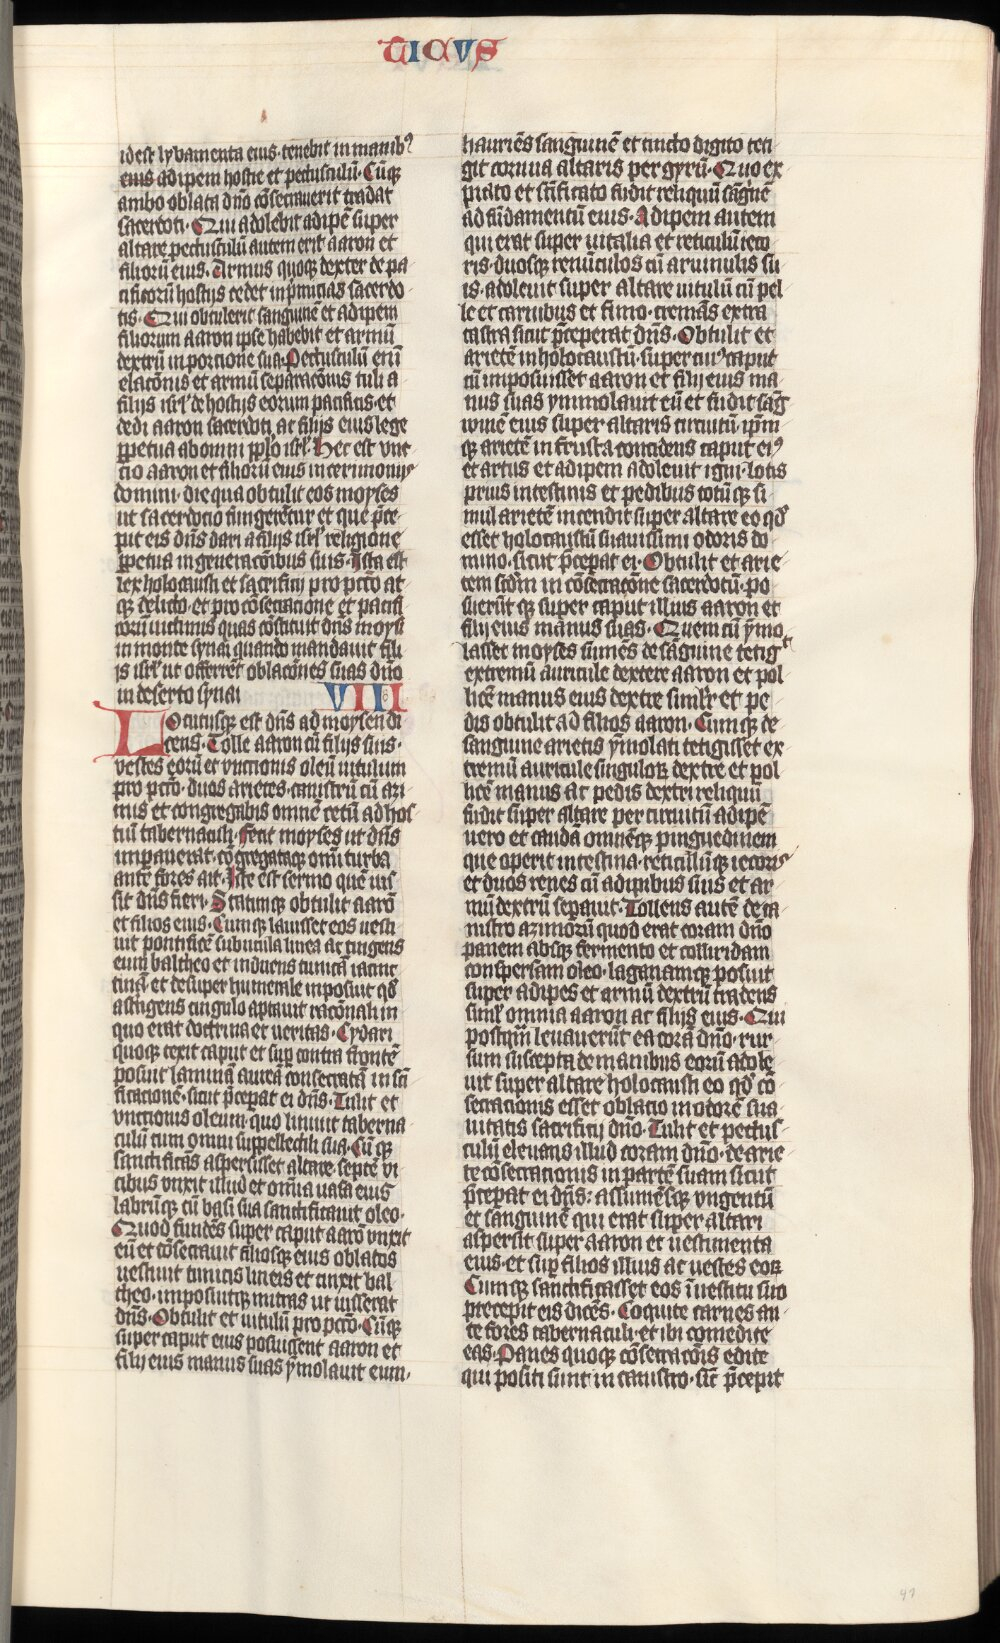 TICVS
id est lybamenta eius· tenebit in manibꝰ
eius adipem hostie et pectusculū· Cūqꝫ
ambo oblata dn̄o cōsecrauerit tradat
sacerdoti· Qui adolebit adipē super
altare pectusculū autem erit aaron et
filiorū eius· Armus quoqꝫ dexter de pa
cificorū hostijs cedet in pͥmicias sacerdo
tis· Qui obtulerit sanguinē et adipem
filiorum aaron ipse habebit et armū
dextrū in porcione sua· Pectusculū enī
elacōnis et armū separacōnis tuli a
filijs isrl̓ de hostijs eorum pacificis· et
dedi aaron sacerdoti ac filijs eius lege
ꝑpetua ab omni pplo isrl̓· Hec est vnc
cio aaron et filiorū eius in cerimonijs
domini· die qua obtulit eos moyses
ut sacerdocio fūgerētur et que p̄ce
pit eis dn̄s dari a filijs isrl̓ religione
ꝑpetua in generacōnibus suis· Ista est
lex holocausti et sacrificij pro pctō at
qꝫ delicto· et pro cōsecracione et pacifi
corū uictimis quas cōstituit dn̄s moysi
in monte synai quando mandauit fili
is isrl̓ ut offerrēt oblacōnes suas dn̄o
in deserto synai VIII
Locutusqꝫ est dn̄s ad moysen di
cens· Tolle aaron cū filijs suis·
vestes eorū et vnctionis oleū uitulum
pro pctō· duos arietes· canistrū cū azi
mis et congregabis omnē cetū ad hos
tiū tabernaculi· Fecit moyses ut dn̄s
imꝑauerat· cōgregataqꝫ om̄i turba
ante fores ait· Iste est sermo quē ius
sit dn̄s fieri· Statimqꝫ obtulit aarō
et filios eius· Cumqꝫ lauisset eos uesti
uit pontificē subucula linea ac cingens
eum baltheo et induens tunicā iacinc
tinā et desuper humerale inposuit qd̓
astrigens cingulo aptauit racōnali in
quo erat doctrina et ueritas· Cydari
quoqꝫ texit caput et suꝑ contra frontē
posuit laminā aureā consecratā in sc̄i
ficacionē· sicut p̄cepat ei dn̄s· Tulit et
vnctionis oleum· quo liniuit taberna
culū cum omni suppellectili sua· Cūqꝫ
sanctificās aspersisset altare septē vi
cibus vnxit illud et om̄ia uasa eius
labrūqꝫ cū basi sua sanctificauit oleo·
Quod fundēs super caput aarō vnxit
eū et cōsecrauit filiosqꝫ eius oblatos
uestiuit tunicis lineis et cinxit bal
theo· imposuitqꝫ mitras ut iusserat
dn̄s· Obtulit et uitulū pro pctō· Cūqꝫ
super caput eius posuissent aaron et
filij eius manus suas ymolauit eum·
hauriēs sanguinē et tincto digito teti
git cornua altaris per gyrū· Quo ex
piato et sc̄ificato fudit reliquū sāguē
ad fūdamentū eius· Adipem autem
qui erat super uitalia et reticulū ieco
ris· duosqꝫ renūculos cū aruinulis su
is· adoleuit super altare uitulū cū pel
le et carnibus et fimo· cremās extra
castra sicut p̄ceperat dn̄s· Obtulit et
arietē in holocaustū· super cuiꝰ caput
cū imposuisset aaron et filij eius ma
nus suas ymmolauit eū et fudit sāg
winē eius super altaris circuitū· ip̄m
qꝫ arietē in frusta concidens caput eiꝰ
et artus et adipem adoleuit igni· lotis
prius intestinis et pedibus totūqꝫ si
mul arietē incendit super altare eo qd̓
esset holocaustū suauissimi odoris do
mino· sicut p̄cepat ei· Obtulit et arie
tem sc̄dm in cōsecracōne sacerdotū· po
suerūtqꝫ super caput illius aaron et
filij eius manus suas· Quem cū ȳmo
lasset moyses sumēs de sāguine tetigᵗ
extremū auricule dextere aaron et pol
licē manus eius dextre simlr̓ et pe
dis obtulit ad filios aaron· Cumqꝫ de
sanguine arietis ȳmolati tetigisset ex
tremū auricule singuloꝝ dextre et pol
licē manus ac pedis dextri reliquū
fudit super altare per circuitū adipē
vero et caudā omnēqꝫ pinguedinem
que operit intestina· reticulūqꝫ iecoris
et duos renes cū adipibus suis et ar
mū dextrū sepauit· Tollens autē de ca
nistro azimorū quod erat coram dn̄o
panem absqꝫ fermento et colluridam
conspersam oleo· laganamqꝫ posuit
super adipes et armū dextrū tradens
siml̓ omnia aaron ac filijs eius· Qui
postqm̄ leuauerūt ea corā dn̄o· rur
sum suscepta de manibus eorū adole
uit super altare holocausti eo qd̓ cō
secracionis esset oblacio in odorē sua
uitatis sacrificij dn̄o· Tulit et pectus
culū eleuans illud coram dn̄o· de arie
te cōsecracionis in partē suam sicut
p̄cepat ei dn̄s: assumēsqꝫ vngentū
et sanguinē qui erat super altari
aspersit super aaron et uestimenta
eius· et suꝑ filios illius ac uestes eoꝝ
Cumqꝫ sanctificasset eos ī uestitu suo
precepit eis dicēs· Coquite carnes an
te fores tabernaculi· et ibi comedite
eas· Panes quoqꝫ cōsecracōis edite
qui positi sunt in canistro· sic̄ p̄cepit
97